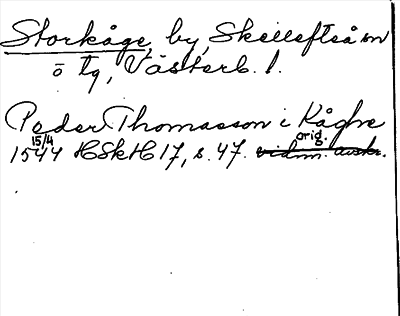 Storkåge, by, Skellefteå sn
ö tg, Västerb. l.
Peder Thomasson i Kåghe
15/4 orig.
1544 HSkH 17, s. 47. vidim. avskr.